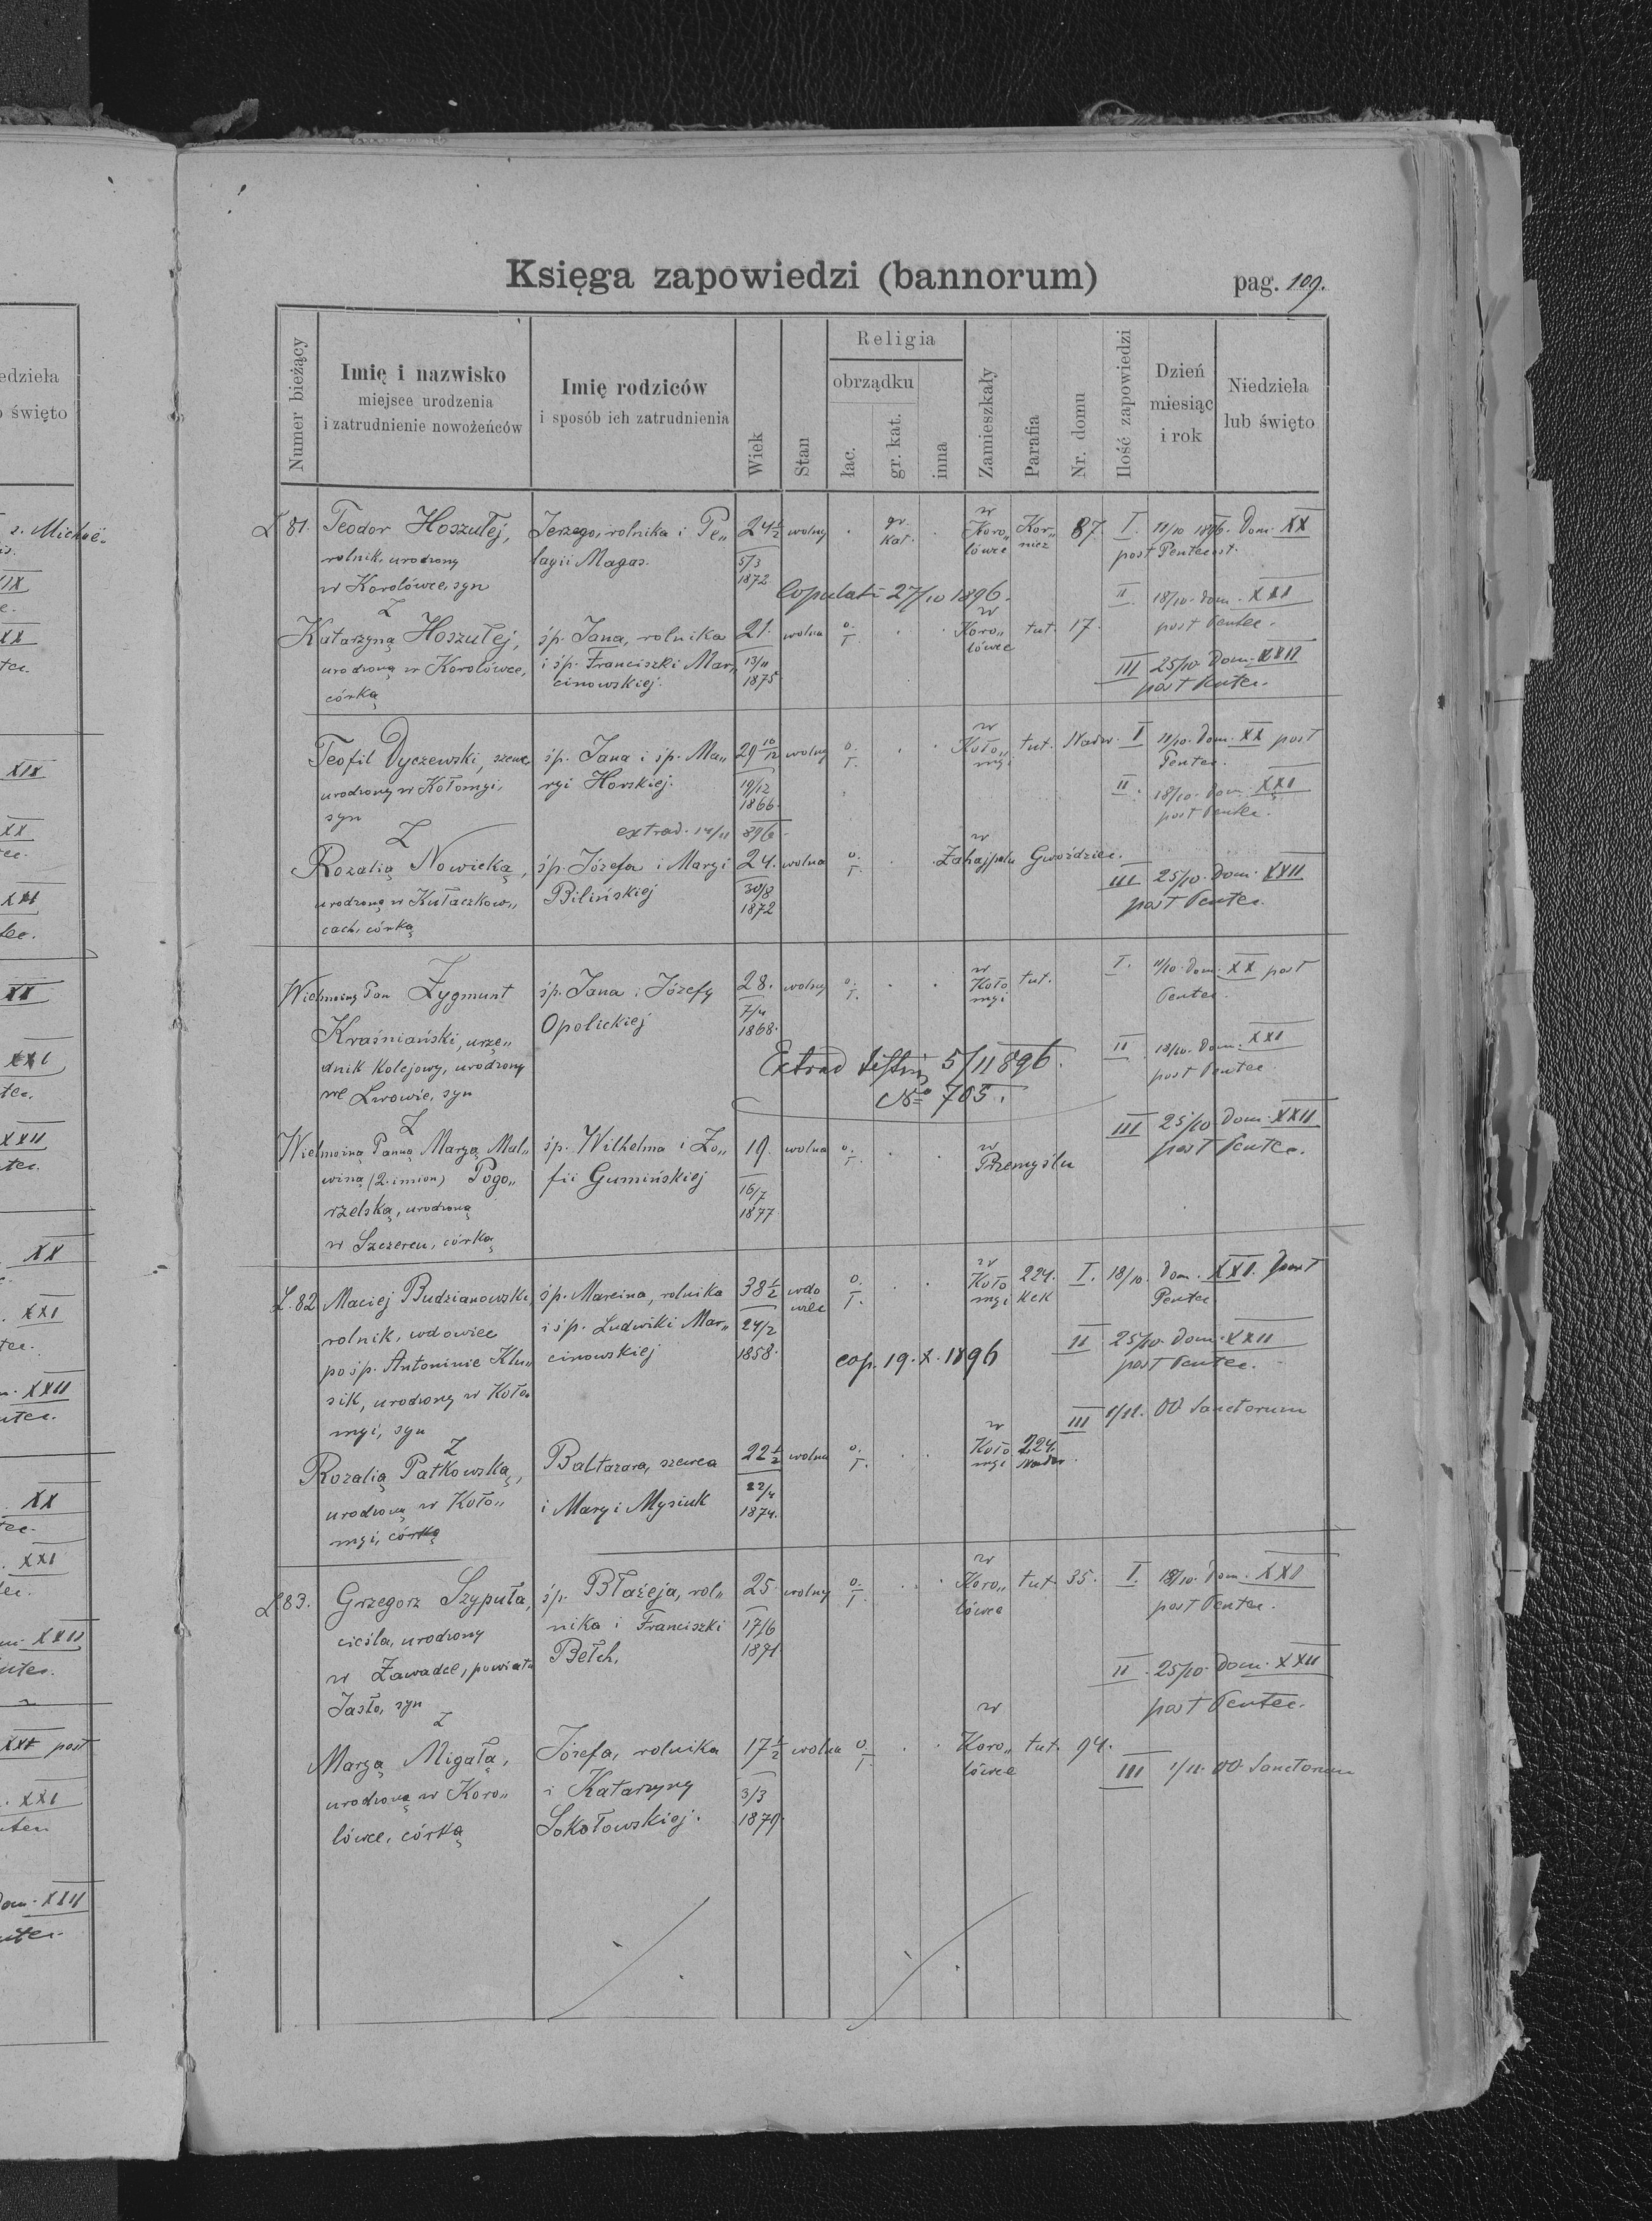 Księga zapowiedzi (bannorum)
pag. 109.
Numer bieżący
Imię i nazwisko
miejsce urodzenia
i zatrudnienie nowożeńców
Imię rodziców
i sposób ich zatrudnienia
Wiek
Stan
Religia
obrządku
łac.
gr. kat.
inna
Zamieszkały
Parafia
Nr. domu
Ilość zapowiedzi
Dzień
miesiąc
i rok
Niedziela
lub święto
L 81. Teodor Hoszułej, Jerzego, rolnika i Pe„ 24½ wolny gr. w Koro„ Kor„ 87. I. 11/10 1896. Dom. XX
rolnik, urodzony lagii Magas. 5/3 kat. lówce nicz post Pentecost.
w Korolówce, syn 1872 Copulati 27/10 1896. II 18/10. dom. XXI
Z post Pentec.
Katarzyną Hoszułej, śp. Jana, rolnika 21. wolna o. ł. w Koro„ tut. 17.
urodzoną w Korolówce, i śp. Franciszki Mar„ 13/11 lówce III 25/10 Dom. XXII
córką cinowskiej. 1875 post Pentec.
Teofil Dyczewski, szewc śp. Jana i śp. Ma„ 29 10/12 wolny o. ł. w Koło„ tut. Nadw. I 11/10. Dom. XX post
urodzony w Kołomyi, ryi Horskiej. 19/12 myi Pentec.
syn 1866. II. 18/10. Dom. XXI
Z extrad. 14/11 896. post Pentec.
Rozalią Nowicką, śp. Józefa i Maryi 24. wolna o. ł. w Zahajpolu Gwoździec.
urodzoną w Kułaczkow„ Bilińskiej 30/8 III 25/10. Dom. XXII
cach, córką 1872 post Pentec.
Wielmożny Pan Zygmunt śp. Jana i Józefy 28. wolny o. ł. w Koło tut. I. 11/10. Dom. XX post
Kraśniański, urzę„ Opolickiej 7/4 myi Pentec.
dnik kolejowy, urodzony 1868. II 18/10. Dom. XXI
we Lwowie, syn Extrad 5/11 896. post Pentec.
№ 705.
Z III 25/10 Dom. XXII
Wielmożną Panną Maryą Mal„ śp. Wilhelma i Zo„ 19. wolna o. ł. w post Pentec.
winą (2. imion) Pogo„ fii Gumińskiej 16/7 Przemyślu
rzelską, urodzoną 1877
w Szczercu, córką
L. 82 Maciej Budzianowski śp. Marcina, rolnika 38½ wdo o. ł. w Koło 224. I. 18/10. Dom. XXI. post
rolnik, wdowiec i śp. Ludwiki Mar„ 24/2 wiec myi KcK Pentec.
po śp. Antoninie Klu„ cinowskiej 1858. cop. 19. X. 1896 II 25/10 Dom. XXII
sik, urodzony w Koło„ post Pentec.
myi, syn III 1/11. OO Sanctorum
Z
Rozalią Patkowską, Baltazara, szewca 22½ wolna o. ł. w Koło 224.
urodzoną w Koło„ i Maryi Mysiuk 22/4 myi Nadw.
myi, córką 1874.
L 83. Grzegorz Szypuła, śp. Błażeja, rol„ 25 wolny o. ł. w Koro„ tut. 35. I. 18/10. Dom. XXI
cieśla, urodzony nika i Franciszki 17/6 lówce post Pentec.
w Zawadce, powiatu Bełch, 1871 II 25/10. Dom. XXII
Jasło, syn post Pentec.
Z
Maryą Migałą, Józefa, rolnika 17½ wolna o. ł. w Koro„ tut. 94.
urodzoną w Koro„ i Katarzyny 3/3 lówce III 1/11. OO Sanctorum
lówce, córką Sokołowskiej. 1879.